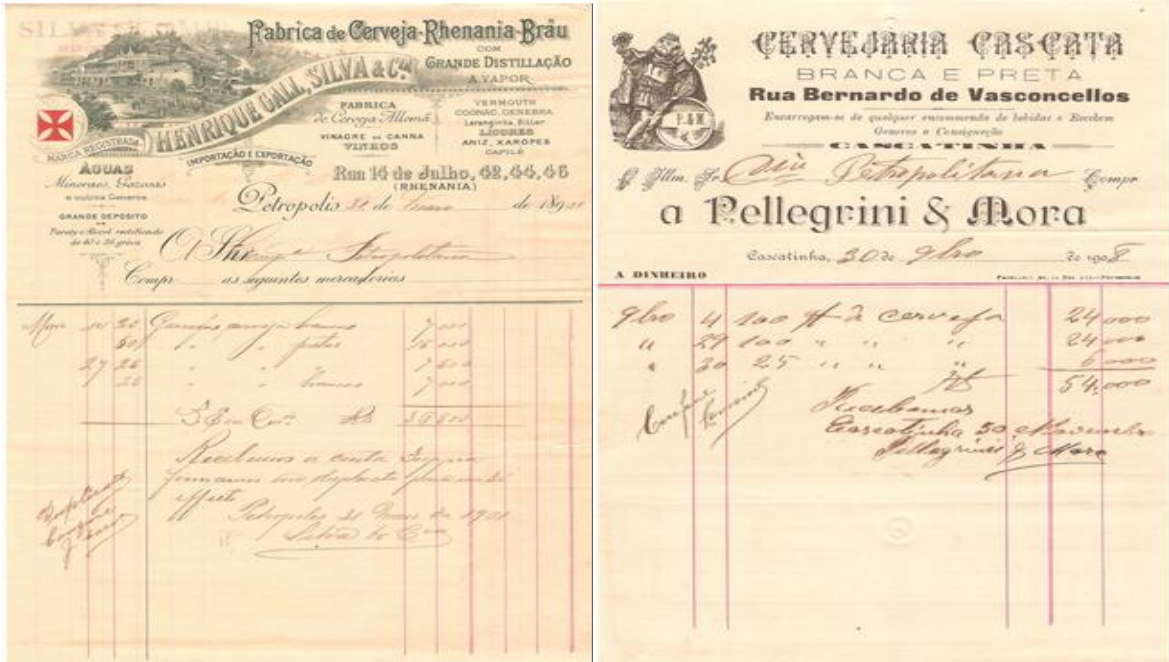 Fabrica de Cerveja-Rhenania-Bräu
COM
GRANDE DISTILLAÇÃO
A VAPOR
HENRIQUE GALI, SILVA & Cia
MARCA REGISTRADA
IMPORTAÇÃO E EXPORTAÇÃO
FABRICA
de Cerveja Allemã
VINAGRE DE CANNA
VINHOS
VERMOUTH
COGNAC, GENEBRA
Laranginha, Bitter
LICORES
ANIZ, XAROPES
CAPILÉ
Rua 14 de Julho, 42, 44, 46
(RHENANIA)
AGUAS
Mineraes, Gazozas
e outros Generos
GRANDE DEPOSITO
DE
Paraty e Alcool rectificado
de 40 e 36 gráos
Petropolis 31 de Maio de 1901
O Snr Petropolitana
Compr as seguintes mercadorias
Maio 20 Garrafas cerveja branca 7 000
30 " " pretas
27 25 " " 7 500
25 " " branca 7 000
Rs 36 500
Recebemos a conta
effeito
Petropolis 31 Maio de 1901
Silva & Cia
Duplicata
CERVEJARIA CASCATA
BRANCA E PRETA
Rua Bernardo de Vasconcellos
Encarregam-se de qualquer encommenda de bebidas e Recebem
Generos a Consignação
CASCATINHA
P. & M.
O Illm. Sr. Cia Petropolitana Compr
a Pellegrini & Mora
Cascatinha, 30 de 9bro de 1908
A DINHEIRO
9bro 4 100 de cerveja 24 000
" 29 100 " " " 24 000
" 30 25 " " " 6 000
Rs 54.000
Recebemos
Cascatinha 30 Novembro
Pellegrini & Mora